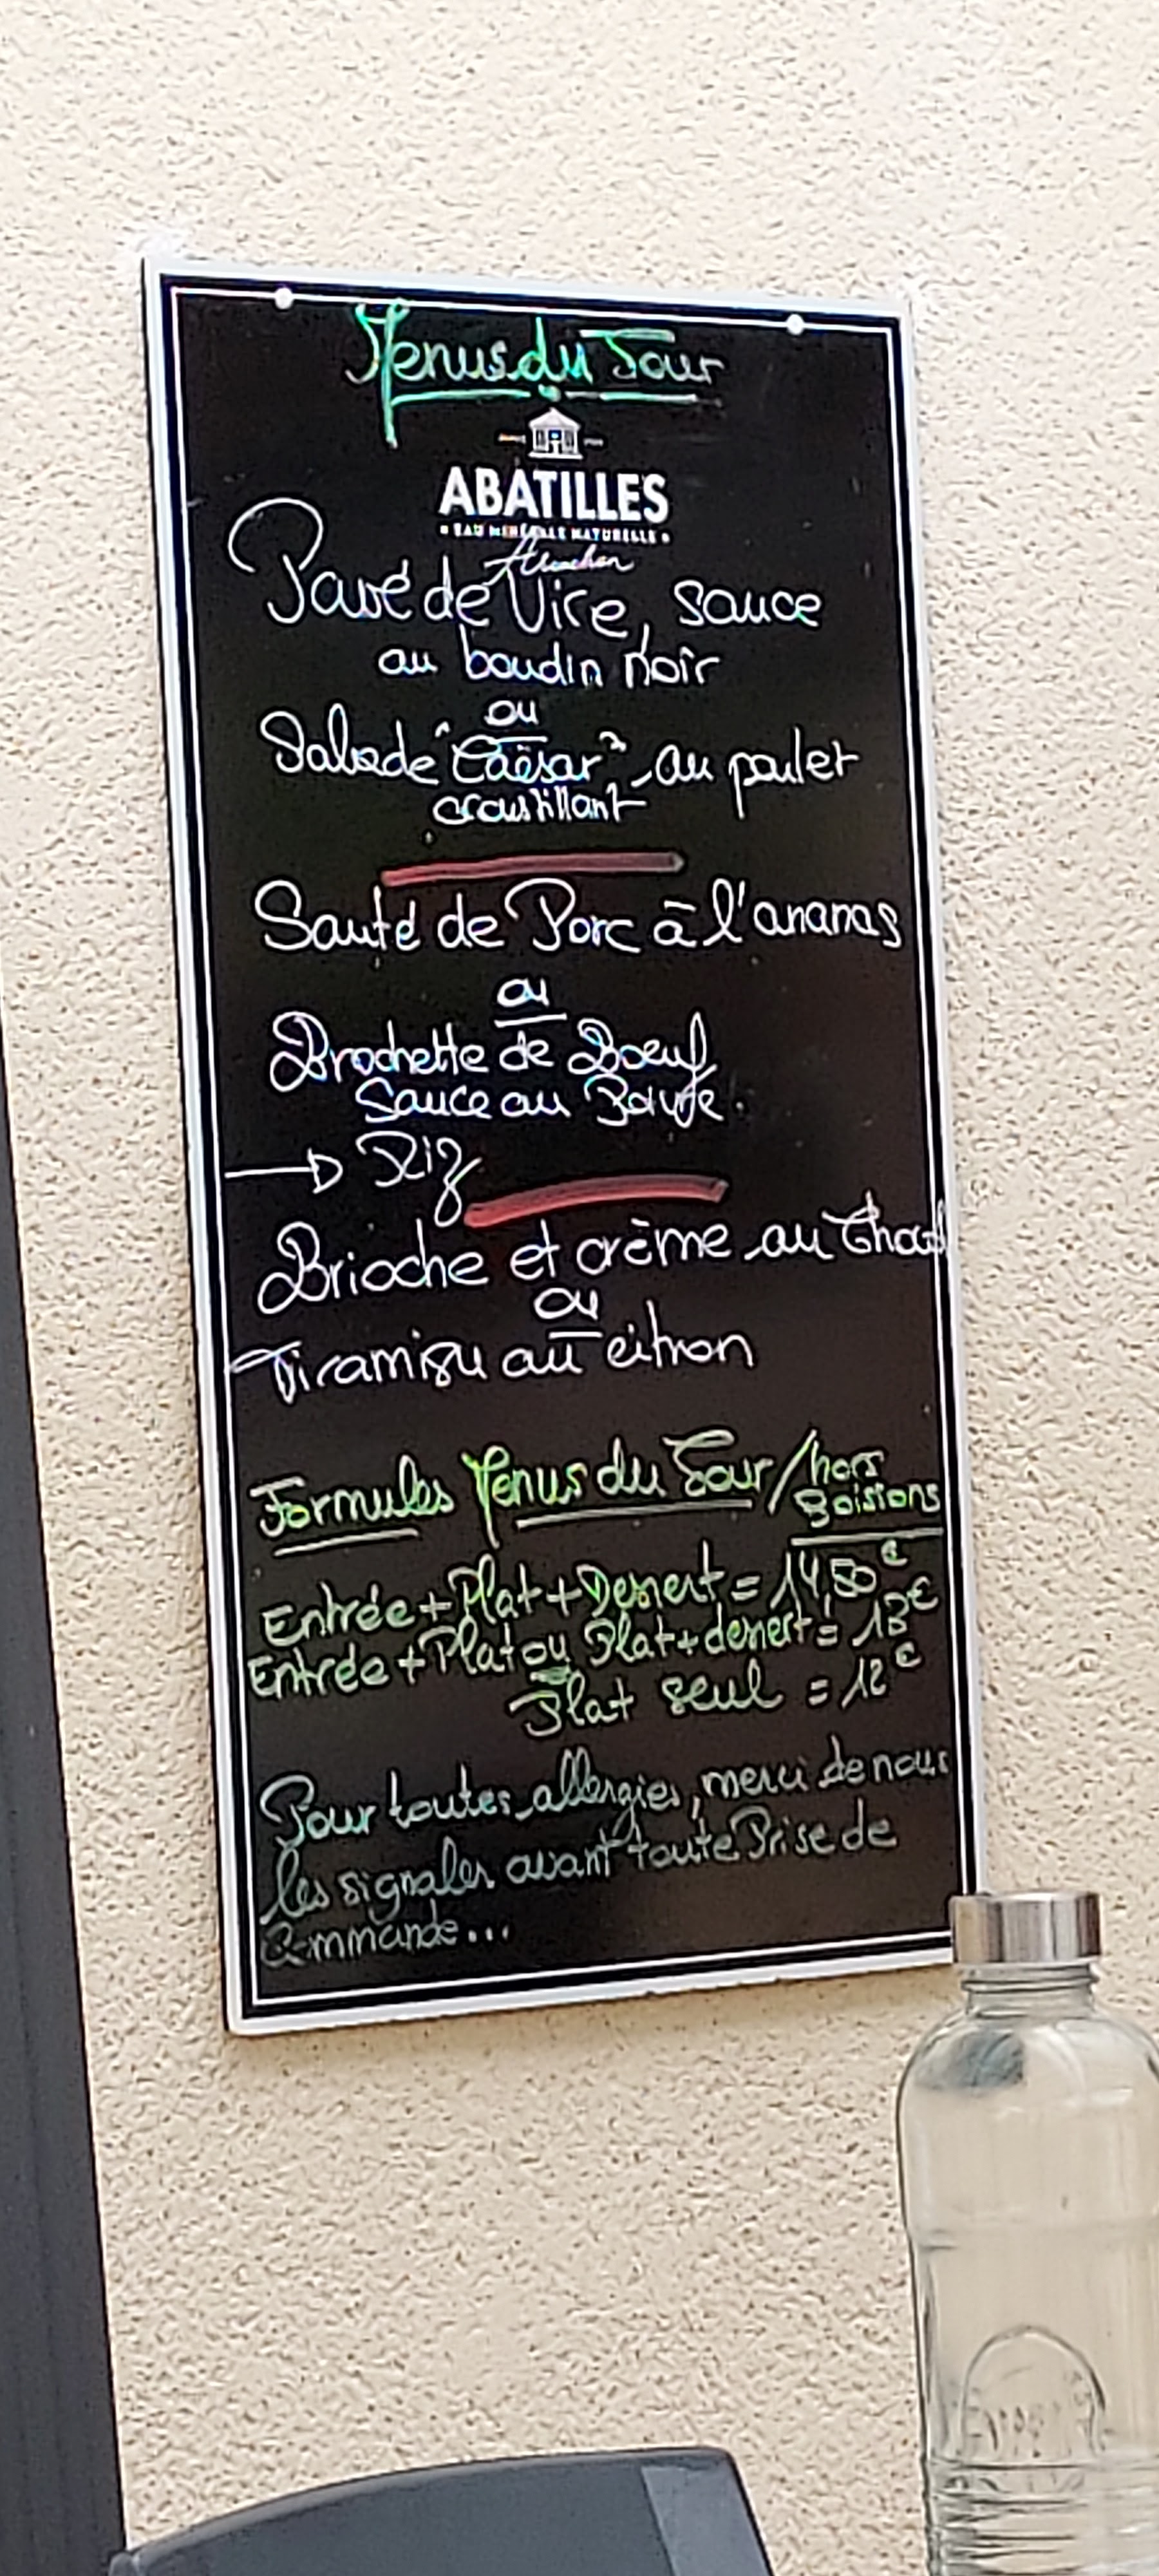 Menus du Jour
ABATILLES
EAU MINÉRALE NATURELLE
Arcachon
Pavé de Vire, sauce
au boudin noir
ou
Salade "Caësar" au poulet
croustillant
Sauté de Porc à l'ananas
ou
Brochette de Boeuf
Sauce au Poivre.
→ Riz
Brioche et crème au
ou
Tiramisu au citron
Formules Menus du Jour / hors
Boissons
Entrée + Plat + Dessert = 14,50€
Entrée + Plat ou Plat + dessert = 13€
Plat seul = 12€
Pour toutes allergies, merci de nous
les signaler avant toute Prise de
Commande...